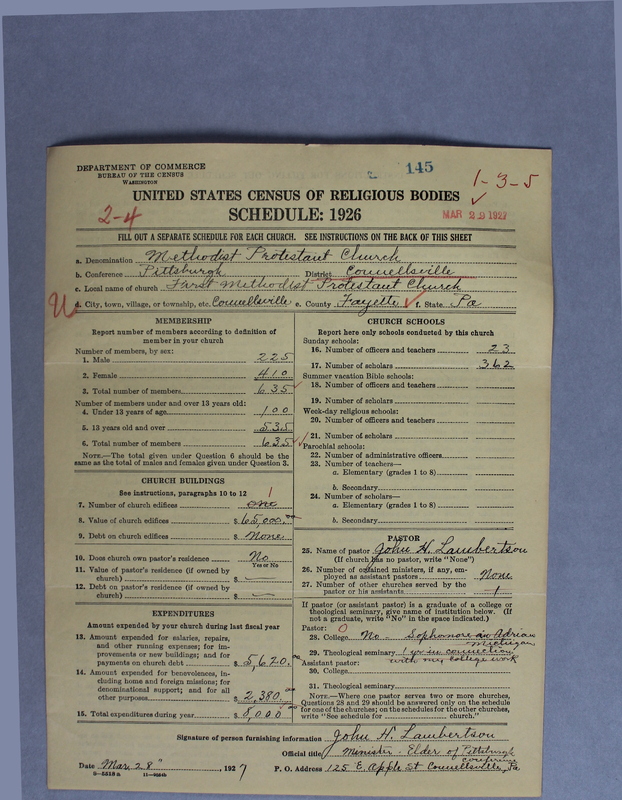 145
DEPARTMENT OF COMMERCE
BUREAU OF THE CENSUS
WASHINGTON
1-3-5
UNITED STATES CENSUS OF RELIGIOUS BODIES
2-4
SCHEDULE: 1926
MAR 29 1927
FILL OUT A SEPARATE SCHEDULE FOR EACH CHURCH. SEE INSTRUCTIONS ON THE BACK OF THIS SHEET
a. Denomination Methodist Protestant Church
b. Conference Pittsburgh District Connellsville
c. Local name of church First Methodist Protestant Church
d. City, town, village, or township, etc. Connellsville e. County Fayette f. State Pa
MEMBERSHIP
Report number of members according to definition of
member in your church
Number of members, by sex:
1. Male 225
2. Female 410
3. Total number of members 635
Number of members under and over 13 years old:
4. Under 13 years of age 100
5. 13 years old and over 535
6. Total number of members 635
NOTE.—The total given under Question 6 should be
same as the total of males and females given under Question 3.
CHURCH BUILDINGS
See instructions, paragraphs 10 to 12
1
7. Number of church edifices one
8. Value of church edifices $ 65,000.00
9. Debt on church edifices $ None
10. Does church own pastor's residence No
Yes or No
11. Value of pastor's residence (if owned by
church) $ —
12. Debt on pastor's residence (if owned by
church) $ —
EXPENDITURES
Amount expended by your church during last fiscal year
13. Amount expended for salaries, repairs,
and other running expenses; for im-
provements or new buildings; and for
payments on church debt $ 5,620.00
14. Amount expended for benevolences, in-
cluding home and foreign missions; for
denominational support; and for all
other purposes $ 2,380.00
15. Total expenditures during year $ 8,000.00
CHURCH SCHOOLS
Report here only schools conducted by this church
Sunday schools:
16. Number of officers and teachers 23
17. Number of scholars 362
Summer vacation Bible schools:
18. Number of officers and teachers
19. Number of scholars
Week-day religious schools:
20. Number of officers and teachers
21. Number of scholars
Parochial schools:
22. Number of administrative officers
23. Number of teachers—
a. Elementary (grades 1 to 8)
b. Secondary
24. Number of scholars—
a. Elementary (grades 1 to 8)
b. Secondary
PASTOR
25. Name of pastor John H. Lambertson
(If church has no pastor, write "None")
26. Number of ordained ministers, if any, em-
ployed as assistant pastors None
27. Number of other churches served by the
pastor or his assistants 1
If pastor (or assistant pastor) is a graduate of a college or
theological seminary, give name of institution below. (If
not a graduate, write "No" in the space indicated.)
Pastor: 0
28. College No. Sophomore in Adrian
Michigan
29. Theological seminary 1 yr in connection
with my college work
Assistant pastor:
30. College
31. Theological seminary
NOTE.—Where one pastor serves two or more churches,
Questions 28 and 29 should be answered only on the schedule
for one of the churches; on the schedules for the other churches,
write "See schedule for church."
Signature of person furnishing information John H. Lambertson
Official title Minister. Elder of Pittsburgh
conference
Date Mar 28", 1927 P. O. Address 125 E. Apple St Connellsville, Pa